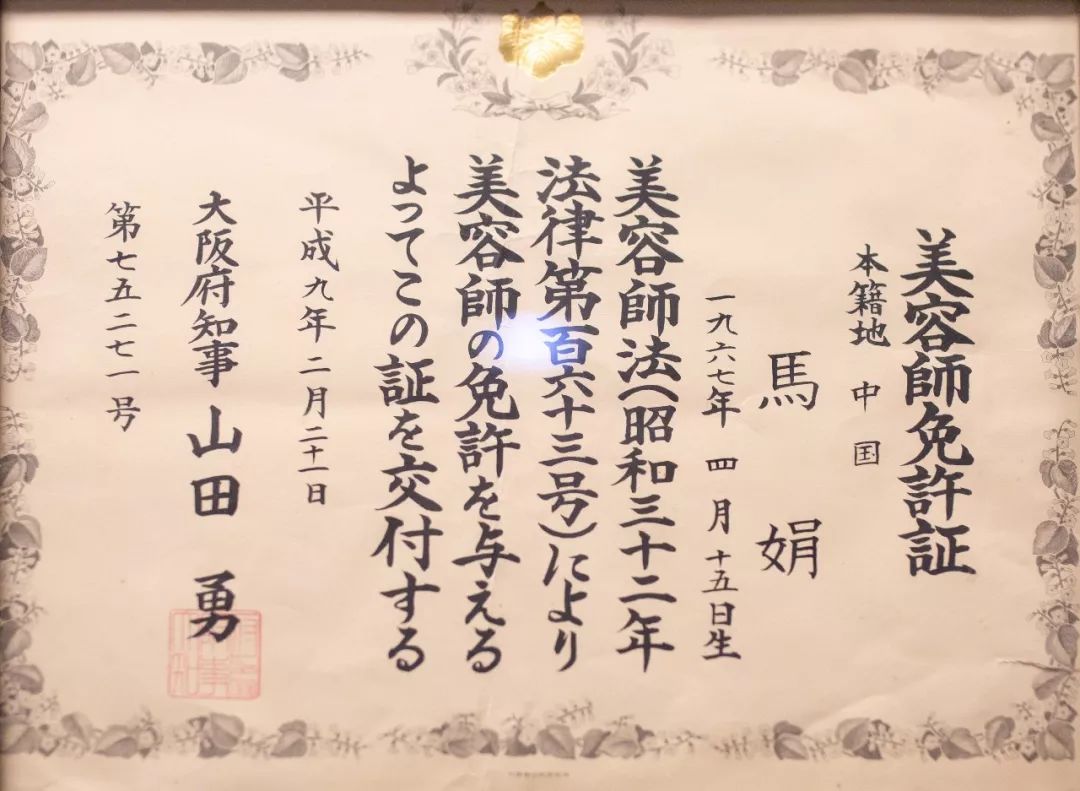 美容師免許証
本籍地 中国
馬 娟
一九六七年 四月十五日生
美容師法(昭和三十二年
法律第百六十三号)により
美容師の免許を与える
よってこの証を交付する
平成九年二月二十一日
大阪府知事 山田 勇
第七五二七一号